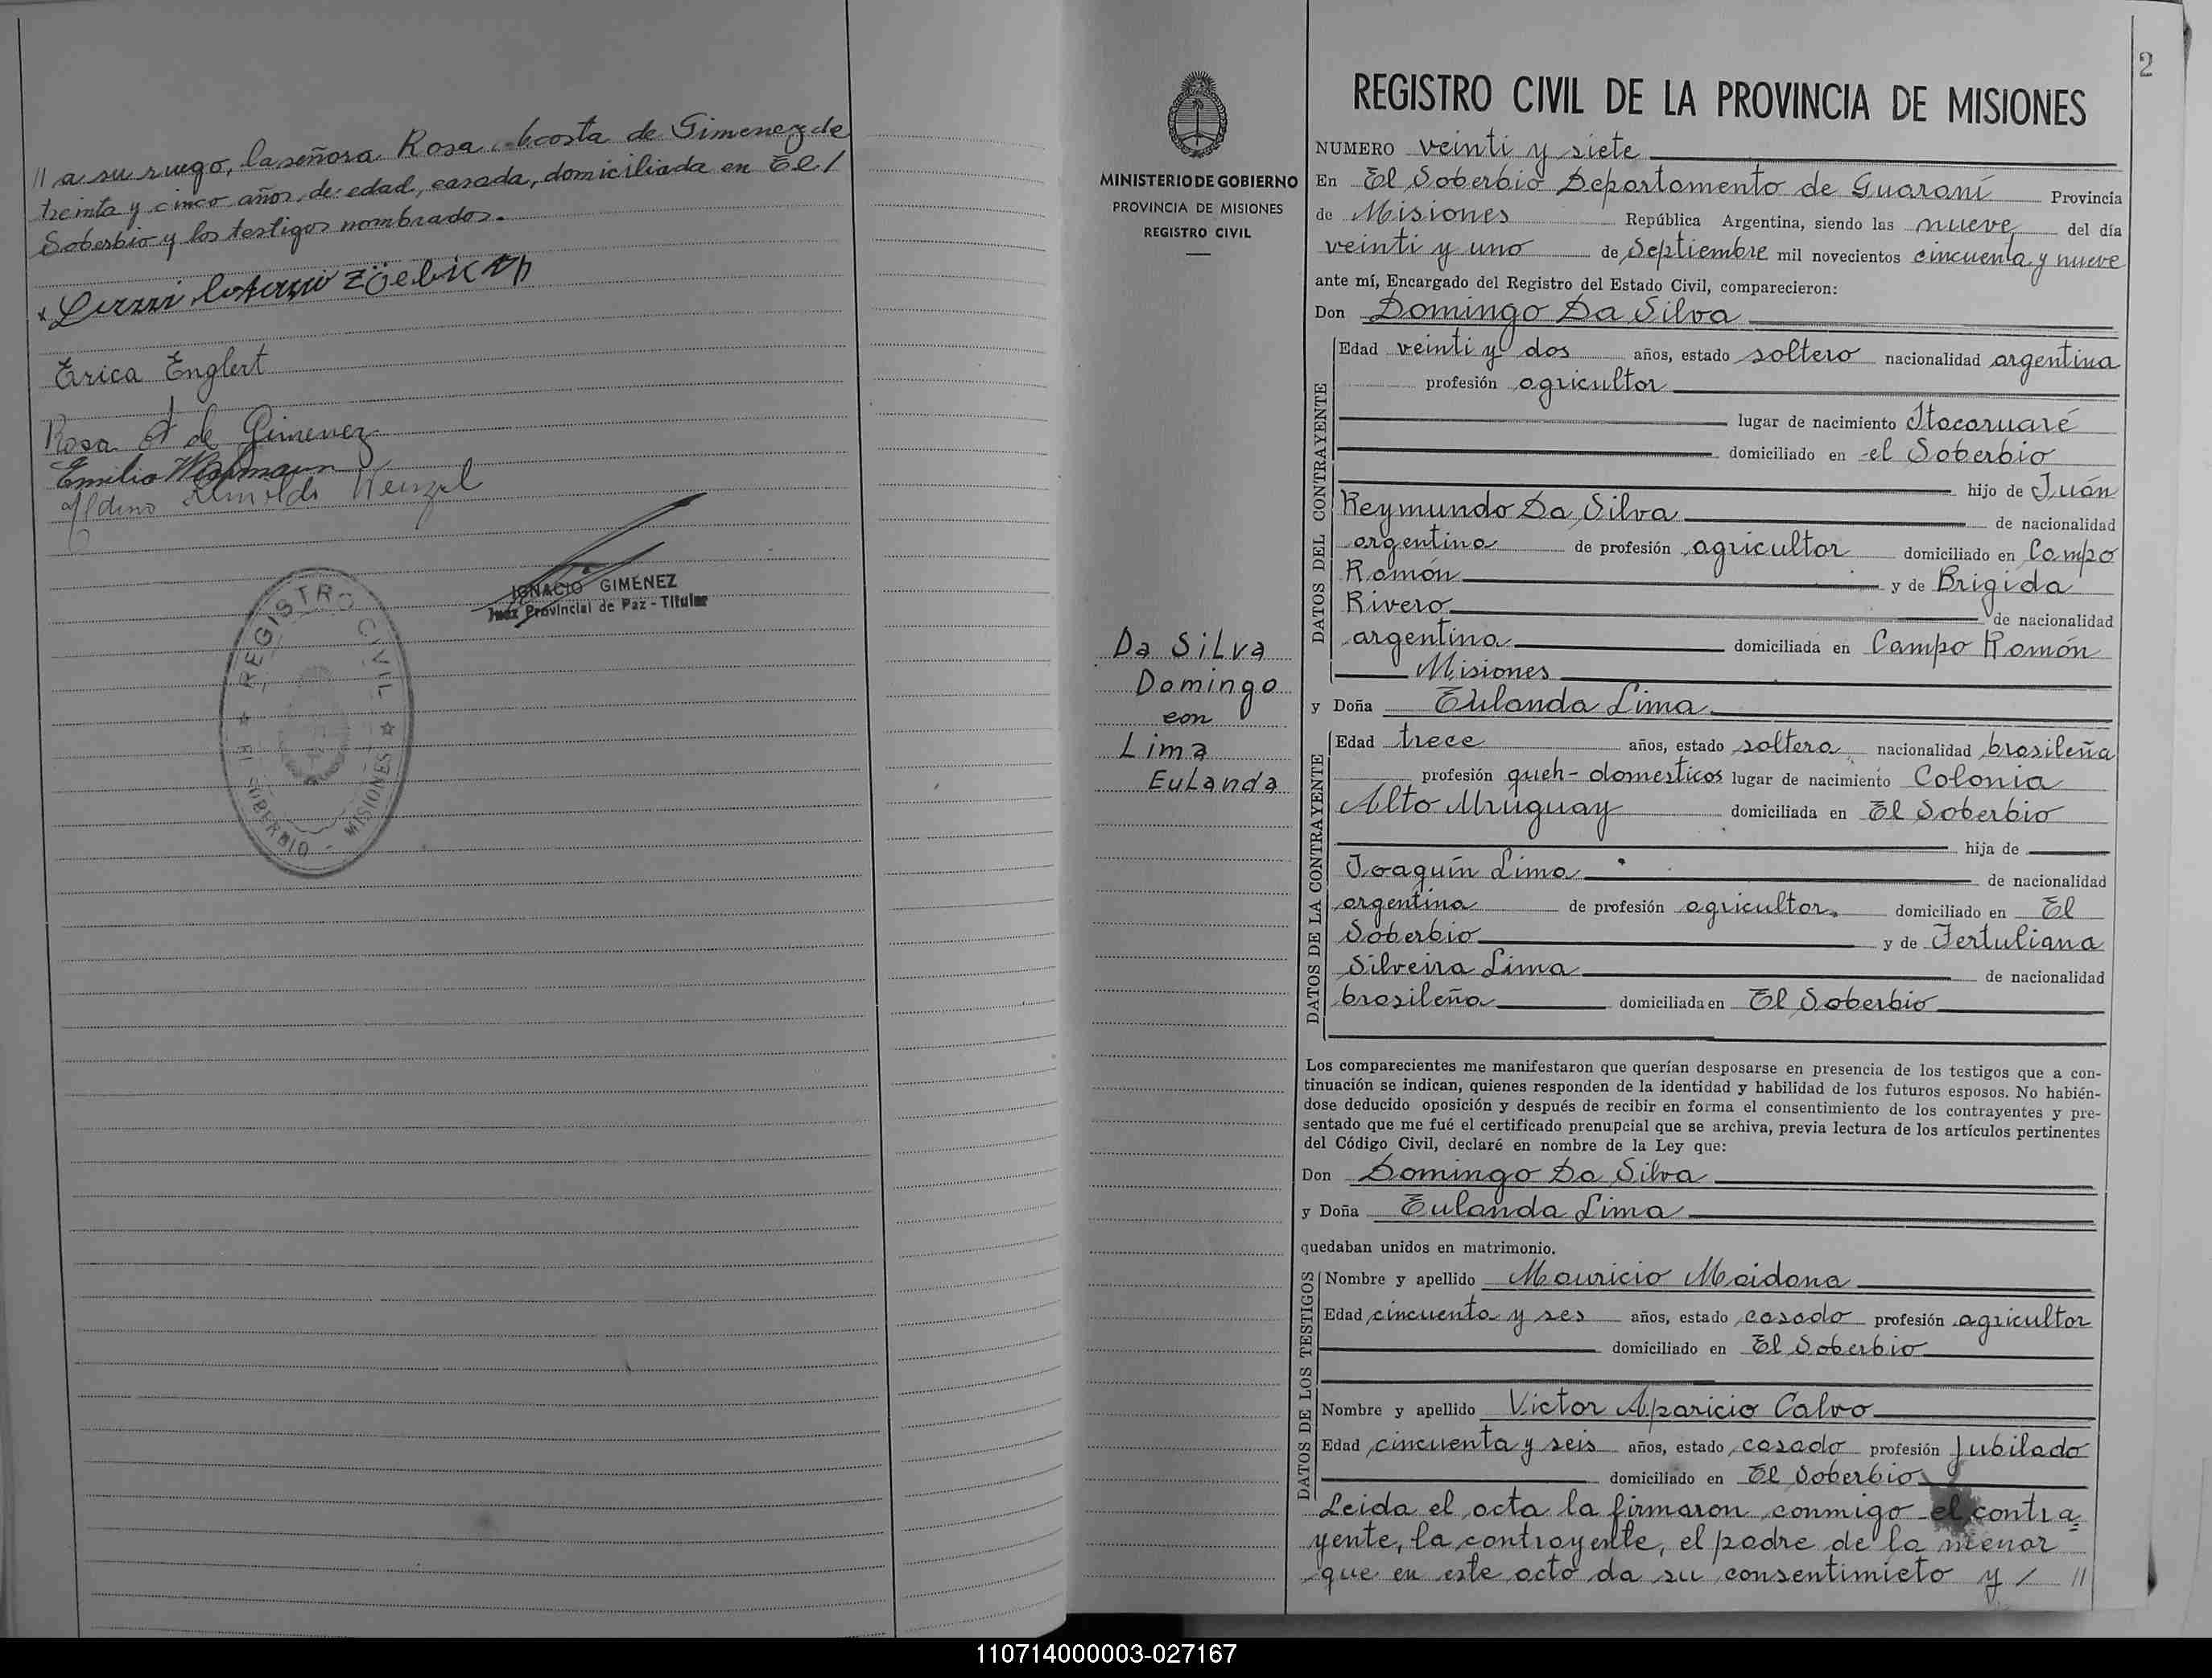 // a su ruego, la señora Rosa Acosta de Gimenez de
treinta y cinco años de edad, casada, domiciliada en El /
Soberbio y los testigos nombrados.
Erica Englert
Rosa A de Gimenez
Emilio
Aldino Arnoldo Wenzel
IGNACIO GIMENEZ
Juez Provincial de Paz - Titular
REGISTRO CIVIL
EL SOBERBIO - MISIONES
2
MINISTERIO DE GOBIERNO
PROVINCIA DE MISIONES
REGISTRO CIVIL
Da Silva
Domingo
con
Lima
Eulanda
REGISTRO CIVIL DE LA PROVINCIA DE MISIONES
NUMERO veinti y siete
En El Soberbio Departamento de Guaraní Provincia
de Misiones República Argentina, siendo las nueve del día
veinti y uno de Septiembre mil novecientos cincuenta y nueve
ante mí, Encargado del Registro del Estado Civil, comparecieron:
Don Domingo Da Silva
DATOS DEL CONTRAYENTE
Edad veinti y dos años, estado soltero nacionalidad argentina
profesión agricultor
lugar de nacimiento Itacaruaré
domiciliado en el Soberbio
hijo de Juán
Reymundo Da Silva de nacionalidad
argentina de profesión agricultor domiciliado en Campo
Ramón y de Brigida
Rivero de nacionalidad
argentina domiciliada en Campo Ramón
Misiones
y Doña Eulanda Lima
DATOS DE LA CONTRAYENTE
Edad trece años, estado soltera nacionalidad brasileña
profesión queh-domesticos lugar de nacimiento Colonia
Alto Uruguay domiciliada en El Soberbio
hija de
Joaquín Lima de nacionalidad
argentina de profesión agricultor. domiciliado en El
Soberbio y de Tertuliana
Silveira Lima de nacionalidad
brasileña domiciliada en El Soberbio
Los comparecientes me manifestaron que querían desposarse en presencia de los testigos que a con-
tinuación se indican, quienes responden de la identidad y habilidad de los futuros esposos. No habién-
dose deducido oposición y después de recibir en forma el consentimiento de los contrayentes y pre-
sentado que me fué el certificado prenupcial que se archiva, previa lectura de los artículos pertinentes
del Código Civil, declaré en nombre de la Ley que:
Don Domingo Da Silva
y Doña Eulanda Lima
quedaban unidos en matrimonio.
DATOS DE LOS TESTIGOS
Nombre y apellido Mauricio Maidana
Edad cincuenta y ses años, estado casado profesión agricultor
domiciliado en El Soberbio
Nombre y apellido Victor Aparicio Calvo
Edad cincuenta y seis años, estado casado profesión Jubilado
domiciliado en El Soberbio
Leida el acta la firmaron conmigo el contra=
yente, la contrayente, el padre de la menor
que en este acto da su consentimieto y / //
110714000003-027167